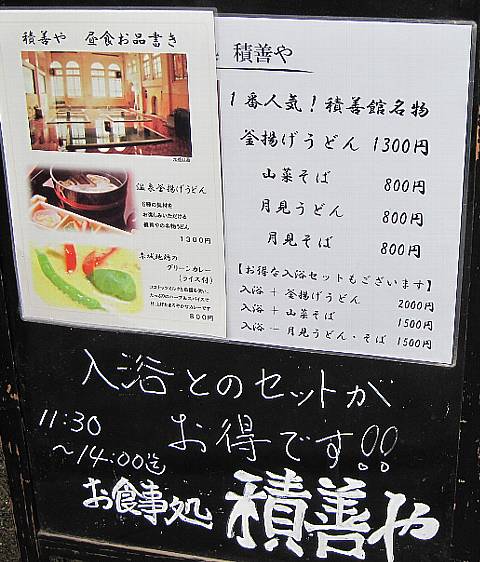 積善や　昼食お品書き
温泉釜揚げうどん
5種の具材を
お楽しみいただける
1300円
赤城地鶏の
グリーンカレー
（ライス付）
800円
積善や
1番人気！積善館名物
釜揚げうどん 1300円
山菜そば 800円
月見うどん 800円
月見そば 800円
【お得な入浴セットもございます】
入浴 + 釜揚げうどん 2000円
入浴 + 山菜そば 1500円
入浴 - 月見うどん・そば 1500円
入浴とのセットが
お得です!!
11:30
～14:00迄
お食事処 積善や